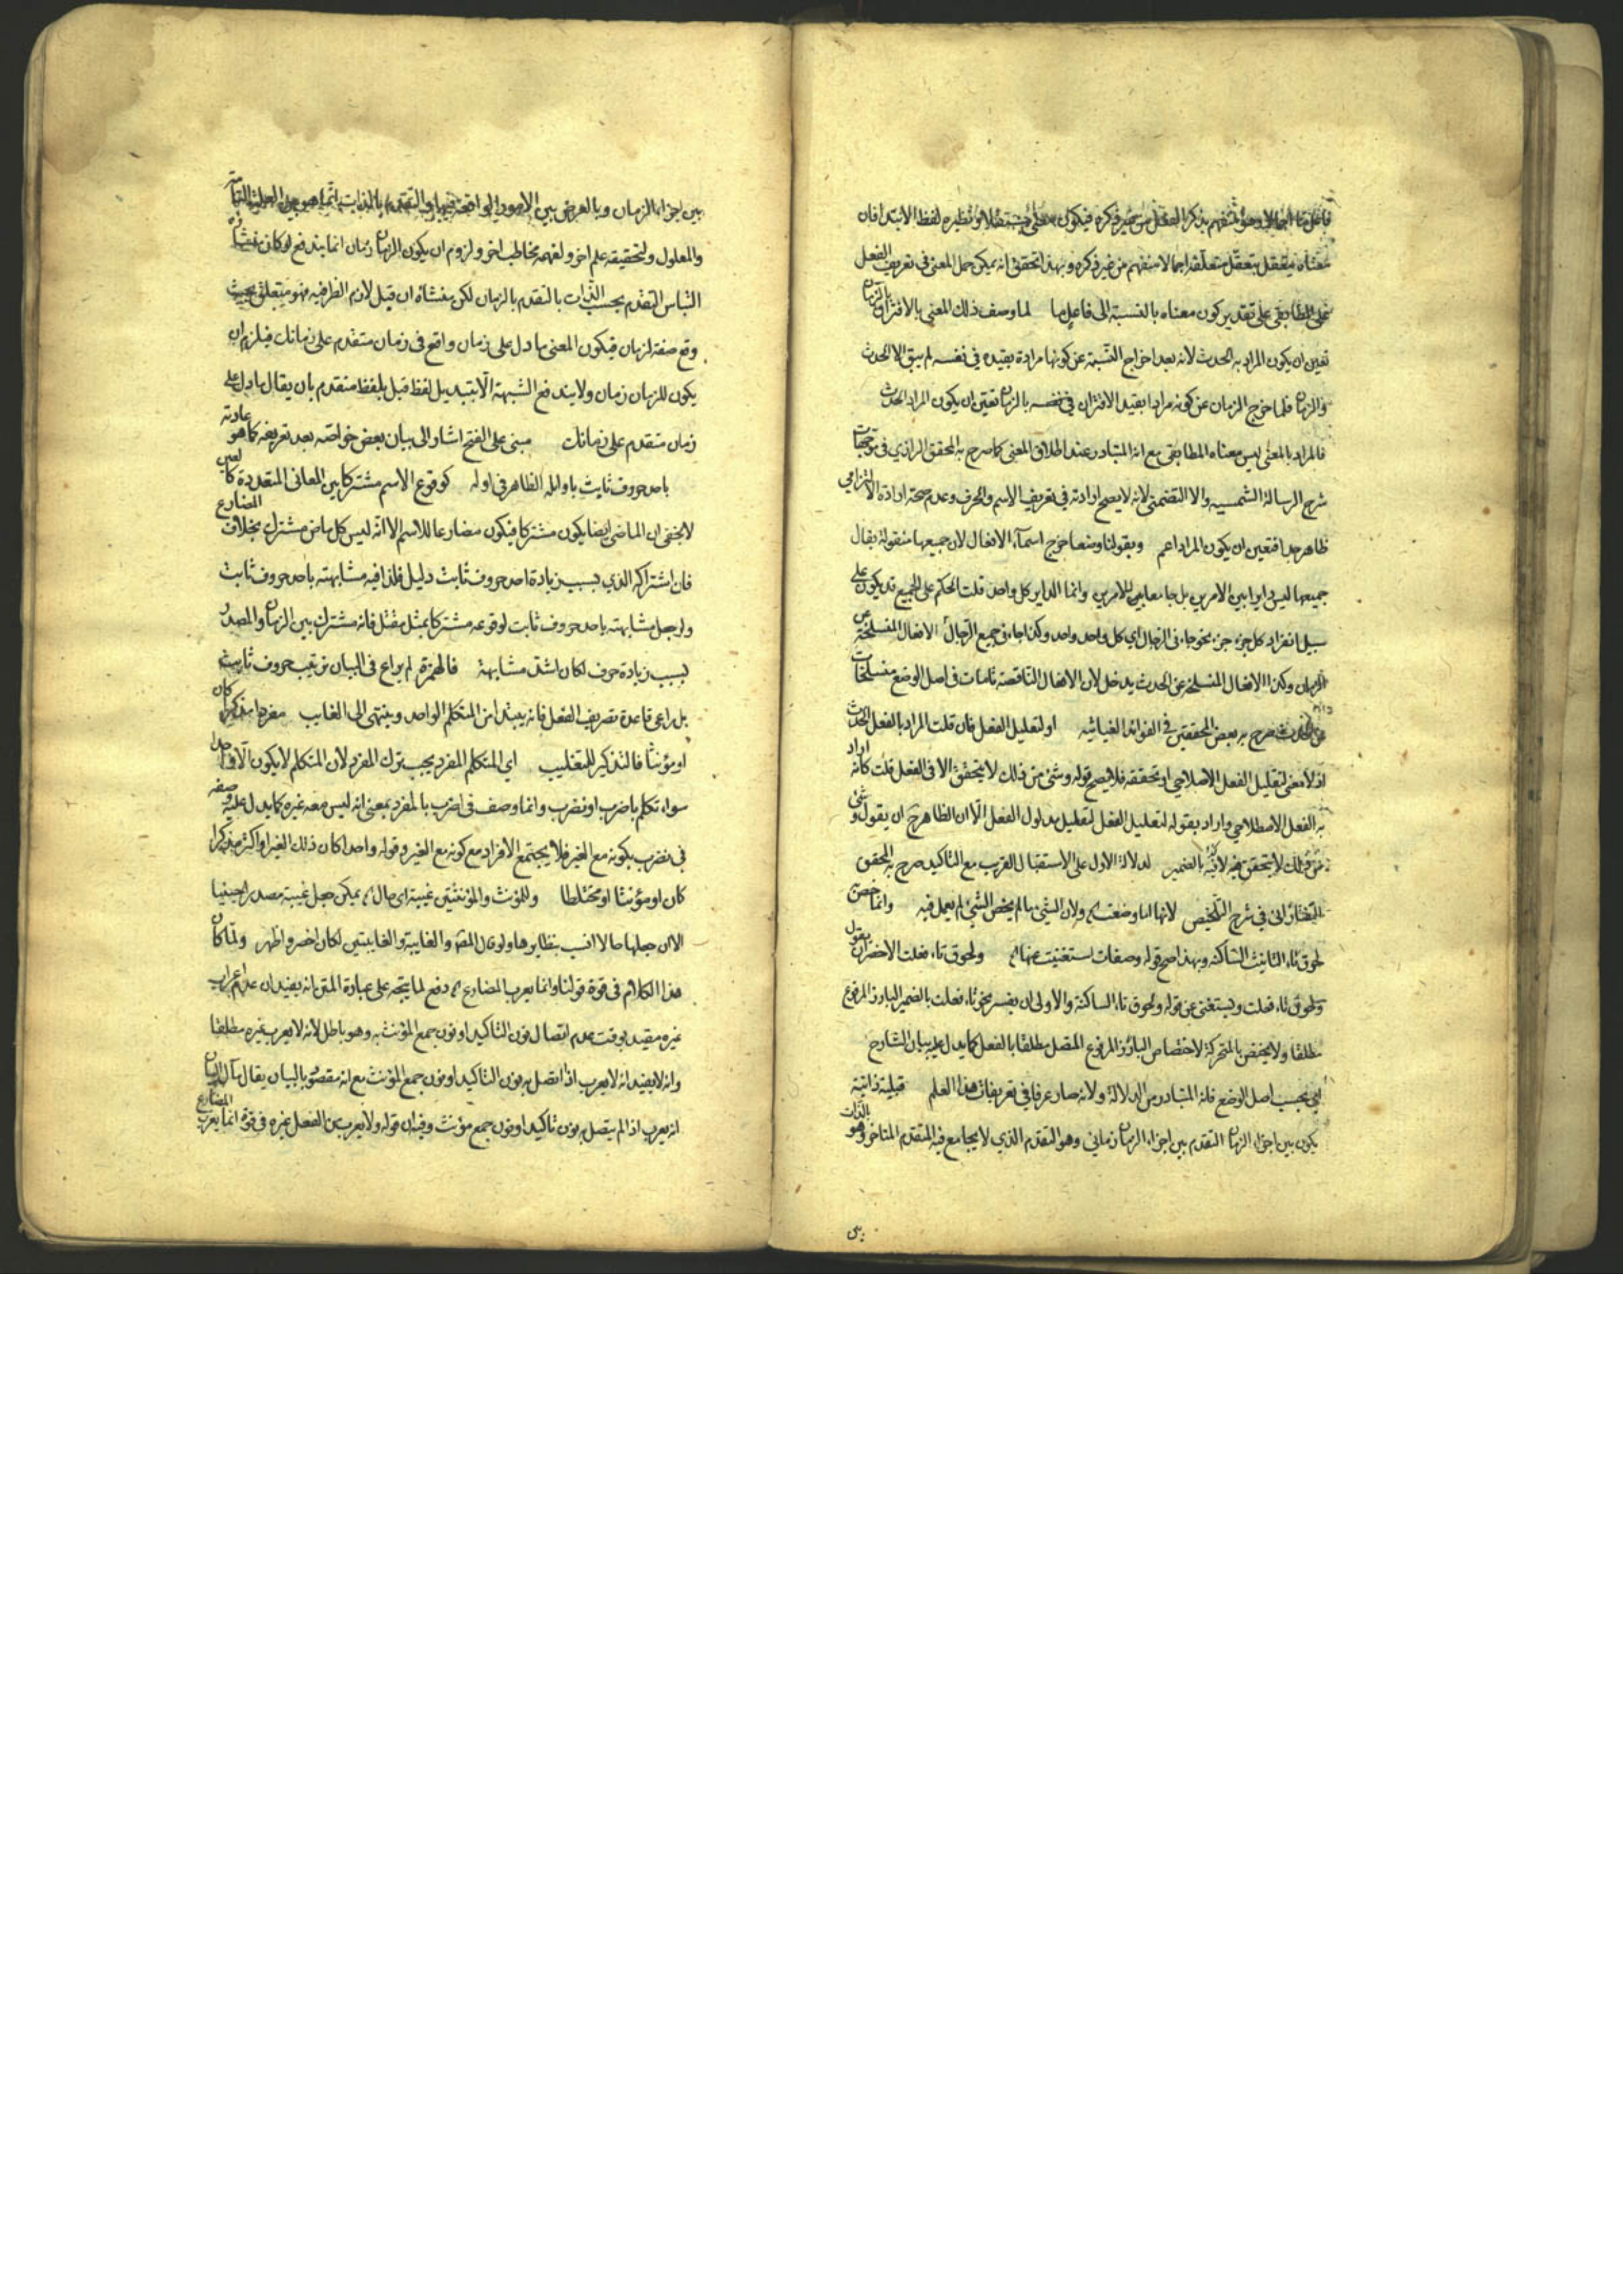 فاعل ما اجمالا وهو منفهم بذكر الفعل من غير ذكره فيكون معنى مستقلا ونظيره لفظ الابتدا فان
معناه متعقل بتعقل متعلقه اجمالا منفهم من غير ذكره وبهذا تحقق انه يمكن حمل المعنى في تعريف الفعل
على المطابقى على تقدير كون معناه بالنسبة الى فاعل ما لما وصف ذلك المعنى بالاقتران بالزمان
تعين ان يكون المراد به الحدث لانه بعد اخراج النسبة عن كونها مرادة بقيده في نفسه لم يبق الا الحدث
والزمان فلما خرج الزمان عن كونه مرادا بقيد الاقتران في نفسه بالزمان تعين ان يكون المراد الحدث
فالمراد بالمعنى ليس معناه المطابقى مع انه المتبادر عند اطلاق المعنى كما صرح به المحقق الرازي في
شرح الرسالة الشمسيه ولا التضمنى لانه لا يصح ارادته في تعريف الاسم والحرف وعدم صحة ارادة الالتزامي
ظاهر جدا فتعين ان يكون المراد اعم وبقولنا وضعا خرج اسماء الافعال لان جميعها منقولة يقال
جميعها ليس دايرا بين الامرين بل جامعا بين الامرين وانما الداير كل واحد قلت الحكم على الجميع قد يكون على
سبيل انفراد كل جزء جزء نحو جاءنى الرجال اي كل واحد واحد وكذا جاءنى جميع الرجال الافعال المنسلخة عن
الزمان وكذا الافعال المنسلخة عن الحدث يدخل لان الافعال الناقصة تامات في اصل الوضع منسلخات
عن الحدث صرح به بعض المحققين في الفوائد الغياثيه او لتقليل الفعل فان قلت المراد بالفعل الحدث
اذ لا معنى لتقليل الفعل الاصلاحي او تحققه فلا يصح قوله وشئ من ذلك لا يتحقق الا في الفعل قلت كانه اراد
به الفعل الاصطلاحي واراد بقوله لتقليل الفعل لتقليل مدلول الفعل الا ان الظاهر ح ان يقول وشئ
من ذلك لا يتحقق فيه لانه بالضمير لدلالة الاول على الاستقبال القريب مع التاكيد صرح به المحقق
التفتازانى في شرح التلخيص لانها اما وضعت الخ ولان الشئ ما لم يخص الشئ لم يعمل فيه وانما خص
لحوق تاء التانيث الساكنه وبهذا صح قوله وصفات استغنيت عنها الخ ولحوق تاء فعلت الاخصر ان يقول
ولحوق تاء فعلت ويستغنى عن قوله ولحوق تاء الساكنة والاولى ان يفسر نحو تاء فعلت بالضمير البارز المرفوع
مطلقا ولا يختص بالمتحركة لاختصاص البارز المرفوع المتصل مطلقا بالفعل كما يدل عليه بيان الشارح
اي بحسب اصل الوضع فانه المتبادر من الدلالة ولانه صار عرفا في تعريفات هذا العلم قبلية ذاتية
يكون بين اجزاء الزمان التقدم بين اجزاء الزمان زمانى وهو التقدم الذي لا يجامع فيه المتقدم المتاخر وهو بالذات
بين اجزاء الزمان وبالعرض بين الامور الواقعة فيها والتقدم بالذات انما هو بين العلة التامة
والمعلول ولتحقيقه علم اخر ولفهمه مخاطب اخر ولزوم ان يكون الزمان زمان انما يندفع لو كان منشاه
التباس التقدم بحسب الذات بالتقدم بالزمان لكن منشاه ان قبل لازم الظرفيه فهو متعلق بحيث
وقع صفة لزمان فيكون المعنى ما دل على زمان واقع في زمان متقدم على زمانك فيلزم ان
يكون للزمان زمان ولا يندفع الشبهة الا بتبديل لفظ قبل بلفظ متقدم بان يقال ما دل على
زمان متقدم على زمانك مبنى على الفتح اشار الى بيان بعض خواصه بعد تعريفه كما هو عادته
باحد حروف نايت باوائله الظاهر في اوله كوقوع الاسم مشتركا بين المعانى المتعددة كالعين
لا يخفى ان الماضى ايضا يكون مشتركا فيكون مضارعا للاسم الا انه ليس كل ماض مشترك بخلاف المضارع
فان اشتراكه الذي بسبب زيادة احد حروف نايت دليل فلذا فيه مشابهته باحد حروف نايت
ولو جعل مشابهته باحد حروف نايت لوقوعه مشتركا بمثل مقتل فانه مشترك بين الزمان والمصدر
بسبب زيادة حرف لكان اشد مشابهة فالهمزة لم يراع في البيان ترتيب حروف نايت
بل راعى قاعدة تصريف الفعل فانه يبتدا من المتكلم الواحد وينتهى الى الغايب مفردا مذكرا كان
او مؤنثا فالتذكير للتغليب اي المتكلم المفرد يجب ترك المفرد لان المتكلم لا يكون الا واحدا
سواء تكلم باضرب او نضرب وانما وصف في اضرب بالمفرد بمعنى انه ليس معه غيره كما يدل عليه وصفه
في نضرب بكونه مع الغير فلا يجتمع الافراد مع كونه مع الغير وقوله واحدا كان ذلك الغير او اكثر مذكرا
كان او مؤنثا او مختلطا وللمؤنث والمؤنثين غيبة اى حال الخ يمكن جعل غيبة مصدرا حينيا
الا ان جعلها حالا انسب بنظايرها ولو قال المص والغايبة والغايبتين لكان اخصر واظهر ولما كان
هذا الكلام في قوة قولنا وانما يعرب المضارع الخ دفع لما يتجه على عبارة المتن انه يفيد ان عدم اعراب
غيره مقيد بوقت عدم اتصال نون التاكيد او نون جمع المؤنث به وهو باطل لانه لا يعرب غيره مطلقا
وانه لا يفيد انه لا يعرب اذا اتصل به نون التاكيد او نون جمع المؤنث مع انه مقصود بالبيان يقال مآل البيان
انه يعرب اذا لم يتصل به نون تاكيد او نون جمع مؤنث وفيه ان قوله ولا يعرب من الفعل غيره في قوة انما يعرب المضارع